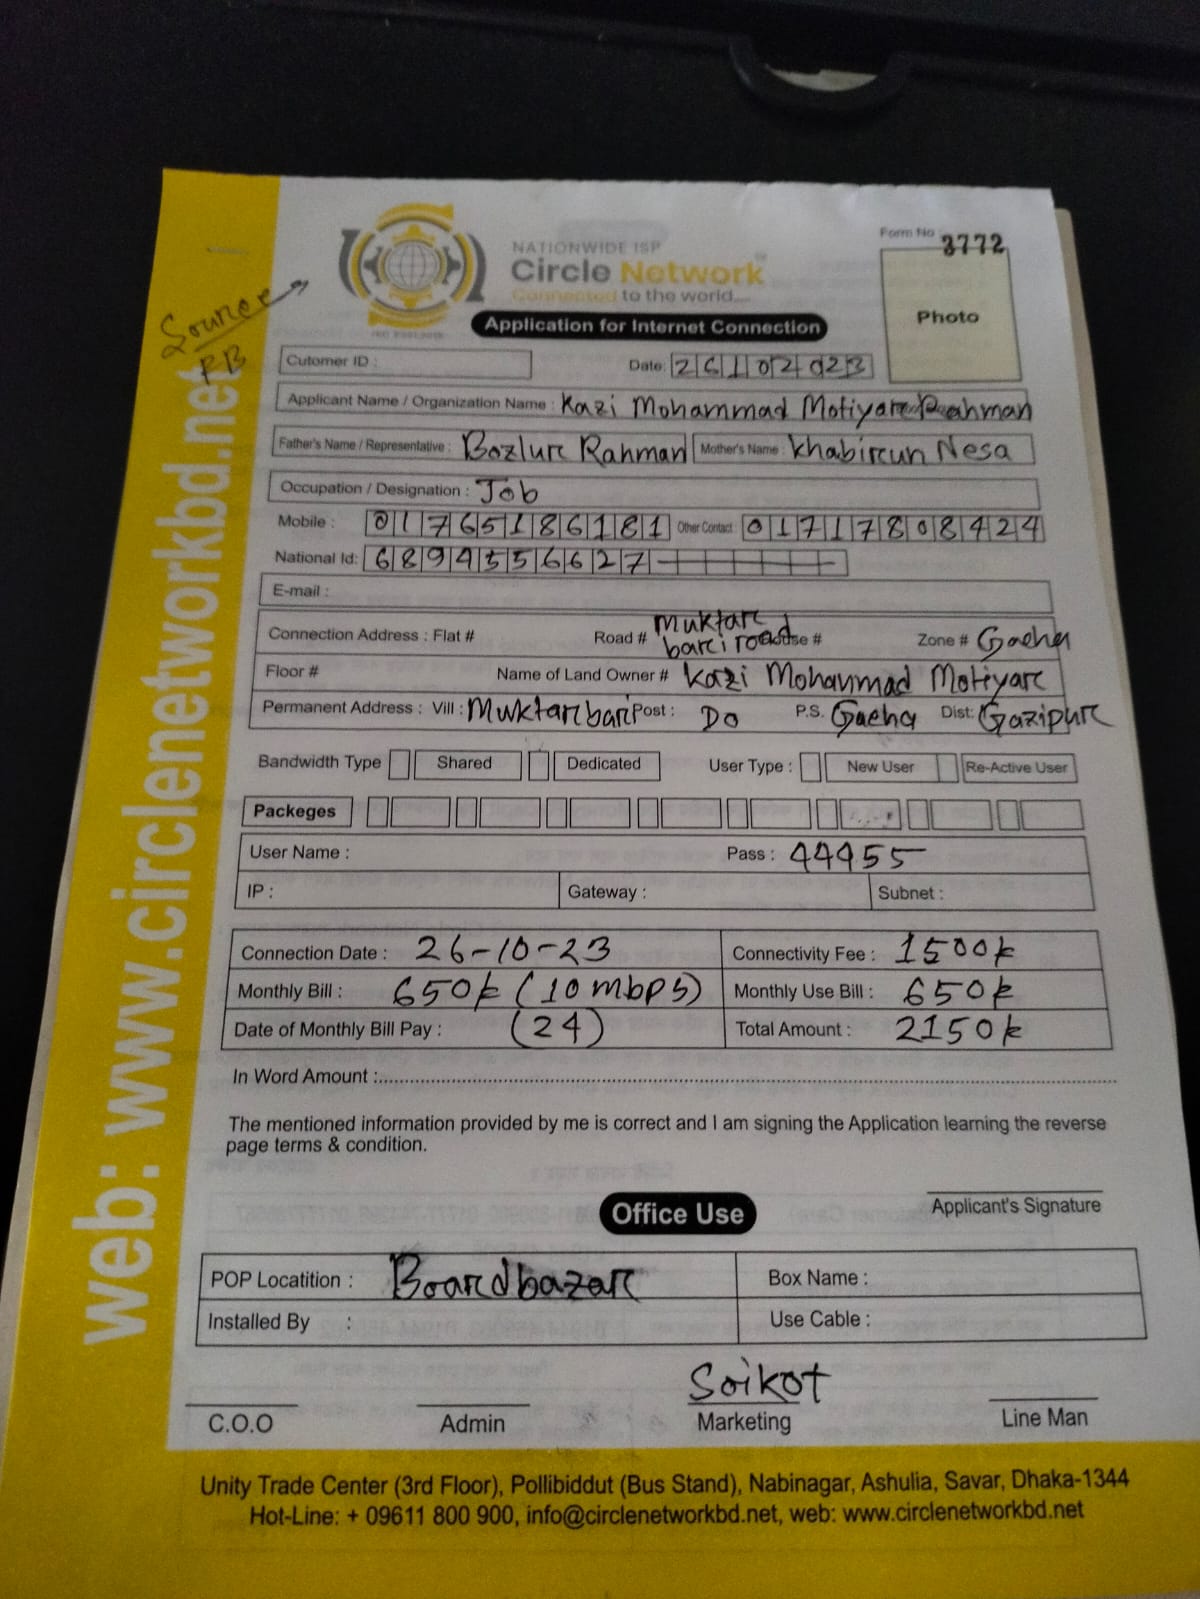 Form No 3772
NATIONWIDE ISP
Circle Network
Connected to the world....
Application for Internet Connection
Photo
Source
FB
Cutomer ID :
Date: 26102023
Applicant Name / Organization Name : Kazi Mohammad Motiyar Rahman
Father's Name / Representative : Bozlur Rahman Mother's Name : Khabirun Nesa
Occupation / Designation : Job
Mobile : 01765186181 Other Contact 01717808424
National Id: 6894556627
E-mail :
Connection Address : Flat # Road # Muktar bari road House # Zone # Gacha
Floor # Name of Land Owner # Kazi Mohammad Motiyar
Permanent Address : Vill : Muktarbari Post : Do P.S. Gacha Dist: Gazipur
Bandwidth Type Shared Dedicated User Type : New User Re-Active User
Packeges
User Name : Pass : 44455
IP : Gateway : Subnet :
Connection Date : 26-10-23 Connectivity Fee : 1500/=
Monthly Bill : 650/= (10mbps) Monthly Use Bill : 650/=
Date of Monthly Bill Pay : (24) Total Amount : 2150/=
In Word Amount :
The mentioned information provided by me is correct and I am signing the Application learning the reverse
page terms & condition.
Applicant's Signature
Office Use
POP Locatition : Boardbazar Box Name :
Installed By : Use Cable :
Soikot
C.O.O Admin Marketing Line Man
Unity Trade Center (3rd Floor), Pollibiddut (Bus Stand), Nabinagar, Ashulia, Savar, Dhaka-1344
Hot-Line: + 09611 800 900, info@circlenetworkbd.net, web: www.circlenetworkbd.net
web: www.circlenetworkbd.net